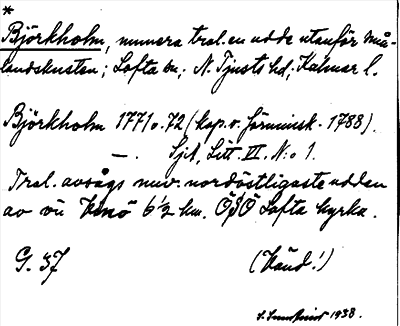 *
Björkholm, numera tral. en udde utanför Små-
landskusten; Lofta sn; N. Tjusts hd; Kalmar l.
Björkholm 1771 o. 72 (kop. o. förminsk. 1788).
—„— Sjk. Litt. VI. N:o 1.
Trol. avsågs nuv. nordöstligaste udden
av ön Vinö 6½ km. ÖSÖ Lofta kyrka.
G. 37 (Vänd!)
1938.